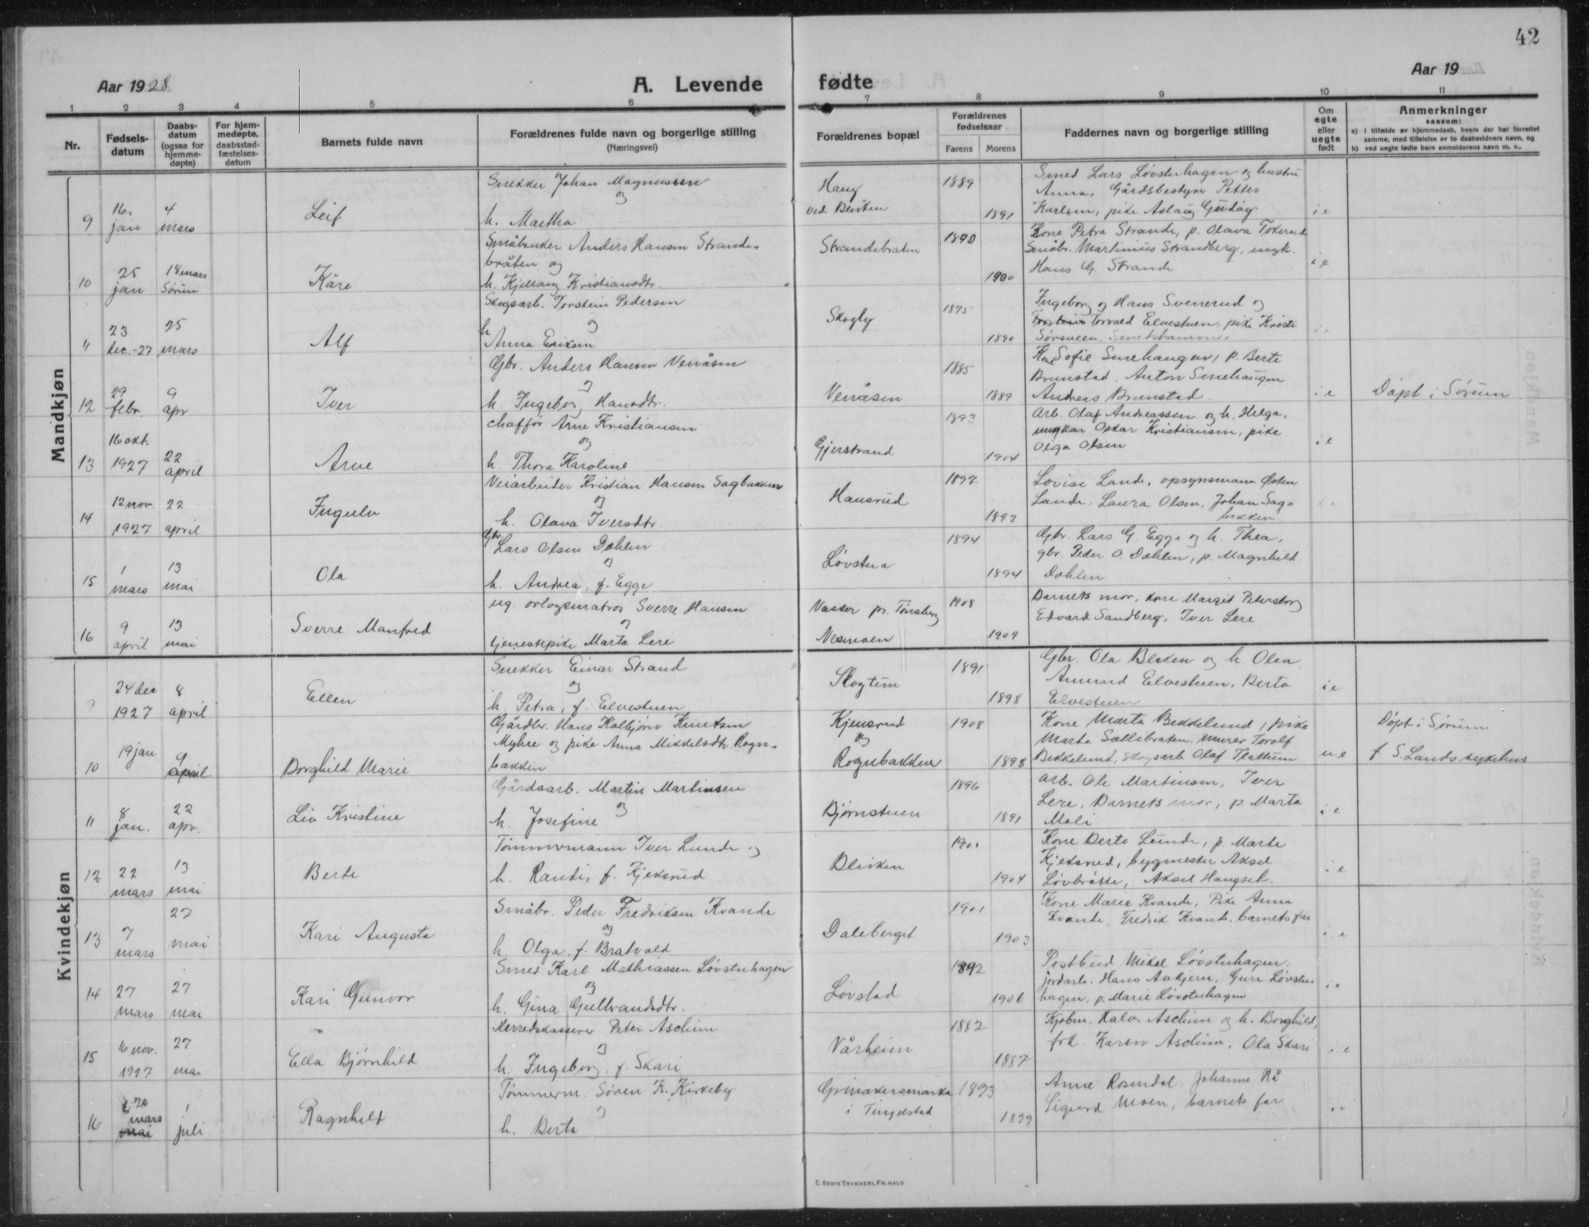 42
Aar 1928.
A. Levende fødte
Aar 19
1 2 3 4 5 6 7 8 9 10 11
Nr.
Fødsels-datum
Daabs-datum (ogsaa for hjemme-døpte)
For hjem-medøpte, daabsstad-fæstelses-datum
Barnets fulde navn
Forældrenes fulde navn og borgerlige stilling
(Næringsvei)
Forældrenes bopæl
Forældrenes fødselsaar
Farens Morens
Faddernes navn og borgerlige stilling
Om egte eller uegte født
Anmerkninger
saasom:
a) i tilfælde av hjemmedaab, hvem der har forrettet samme, med tilføielse av to daabsvidners navn, og
b) ved uegte fødte barn anmelderens navn m. v..
Mandkjøn
9 16. jan 4 mars Leif
Snekker Johan Magnussen
og
h. Martha
Haug
1889 1891
Smed Lars Løvstuhagen og hustru
Anna, Gårdsbestyrer Petter
Karlsen, pike Aslaug
i e
10 25 jan 18 mars Sørum Kåre
Småbruker Anders Hansen Strande-
bråten og
h. Kristiansdtr.
Strandebraten
1890 1900
Kone Petra Strande, p. Olava
Småbr. Martinius Strandberg, ungk.
Hans G. Strande
i e
11 23 dec.-27 25 mars Alf
Skogsarb. Torstein Pedersen
og
h. Anna Eriksen
Skogly
1875 1890
Ingeborg og Hans Svenerud og
Torvald Elvestuen, pike Kristi
12 29 febr. 9 apr Iver
Gbr. Anders Hansen Venåsen
og
h. Ingeborg Hansdtr.
Venåsen
1885 1889
Kone Sofie Snehaugen, p. Berte
Brunstad. Anton Snehaugen
Andreas Brunstad.
i e
Døpt i Sørum
13 16 okt. 1927 22 april Arne
chaffør Arne Kristiansen
og
h. Thora Karoline
Gjerstrand
1893 1904
Arb. Olaf Andreassen og h. Helga,
ungkar Oskar Kristiansen, pike
Olga Olsen
i e
14 12 nov. 1927 22 april Ingulv
Veiarbeider Kristian Hansen Sagbakken
og
h. Olava Iversdtr.
Hansrud
1892 1893
Lovise Lande, opsynsmann Østen
Lande. Laura Olsen. Johan Sag-
bakken.
15 1 mars 13 mai Ola
Gbr. Lars Olsen Dæhlen
og
h. Andrea, f. Egge
Løvstua
1894 1894
Gbr. Lars G. Egge og h. Thea,
gbr. Peder O. Dæhlen, p. Magnhild
Dæhlen
16 9 april 13 mai Sverre Manfred
ug. orlogsmatros Sverre Hansen
og
tjenestepike Marta Lere
Vasser pr. Tønsberg
Nesmoen
1908 1909
Barnets mor, kone Margit Petersborg
Edvard Sandberg, Iver Lere
Kvindekjøn
9 24 dec 1927 8 april Ellen
Snekker Einar Strand
og
h. Petra, f. Elvestuen
Skogtun
1891 1898
Gbr. Ola Bleken og h. Olea.
Amund Elvestuen, Berta
Elvestuen
i e
10 19 jan 9 april Borghild Marie
Gårdbr. Hans Halbjørn Knutsen
Myhre og pike Anna Mikkelsdtr. Rogn-
bakken
Kjensrud
og
Rognebakken
1908 1898
Kone Marta Bekkelund, pike
Marta Sællibraten, murer Torolf
Bekkelund, skogsarb. Olaf Flattum
u e
Døpt i Sørum
f. S. Lands sykehus
11 8 jan. 22 apr. Liv Kristine
Gårdsarb. Martin Martinsen
og
h. Josefine
Bjørnstuen
1896 1891
arb. Ole Martinsen, Iver
Lere, Barnets mor, p. Marta
Moli
i e
12 22 mars 13 mai Berte
Tømmermann Iver Lunde og
h. Randi, f. Kjeksrud
Bleiken
1901 1904
Kone Berte Lunde, p. Marte
Kjeksrud, bygmester Aksel
Løvbråtte, Aksel Haugseth.
i e
13 7 mars 27 mai Kari Augusta
Småbr. Peder Fredriksen Kvande
og
h. Olga, f. Bratvold
Daleberget
1901 1903
Kone Marie Kvande, Pike Anna
Kvande, Fredrik Kvande, barnets far
i e
14 27 mars 27 mai Kari Gunvor
Smed Karl Mathiassen Løvstuhagen
og
h. Gina Gulbrandsdtr.
Løvstad
1892 1906
Postbud Mikal Løvstuhagen.
jordarb. Hans Aukjern, Guri Løvstu-
hagen, p. Marie Løvstuhagen
i e
15 16 nov. 1927 27 mai Ella Bjørnhild
Herredskasserer Peter Aschim
og
h. Ingeborg, f. Skari
Vårheim
1882 1887
Kjøbm. Halv. Aschim og h. Borghild,
frk. Karen Aschim, Ola Skari
i e
16 20 mars 1 juli Ragnhild
Tømmerm. Søren K. Kirkeby
og
h. Berta
Grinakersmarka
i Tingelstad
1893 1899
Anne Rosendal. Johanne Rå
Sigurd Moen, barnets far
E. SEM'S TRYKKERI, FR.HALD